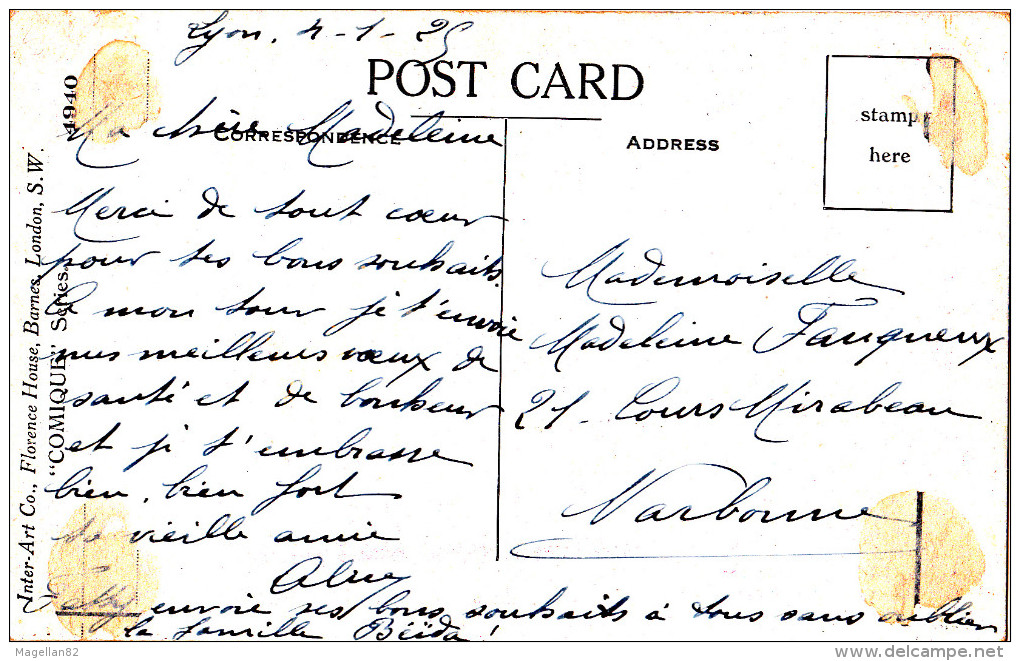 Lyon, 4-1-25
POST CARD
CORRESPONDENCE
ADDRESS
stamp
here
4940
Inter-Art Co., Florence House, Barnes, London, S.W.
"COMIQUE" Series.
Ma chère Madeleine
Merci de tout cœur
pour tes bons souhaits.
A mon tour je t'envoie
mes meilleurs vœux de
santé et de bonheur
et je t'embrasse
bien, bien fort
ta vieille amie
envoie ses bons souhaits à tous sans oublier
la famille Béïda!
Mademoiselle
Madeleine Fauqueux
21 - Cours Mirabeau
Narbonne
Magellan82